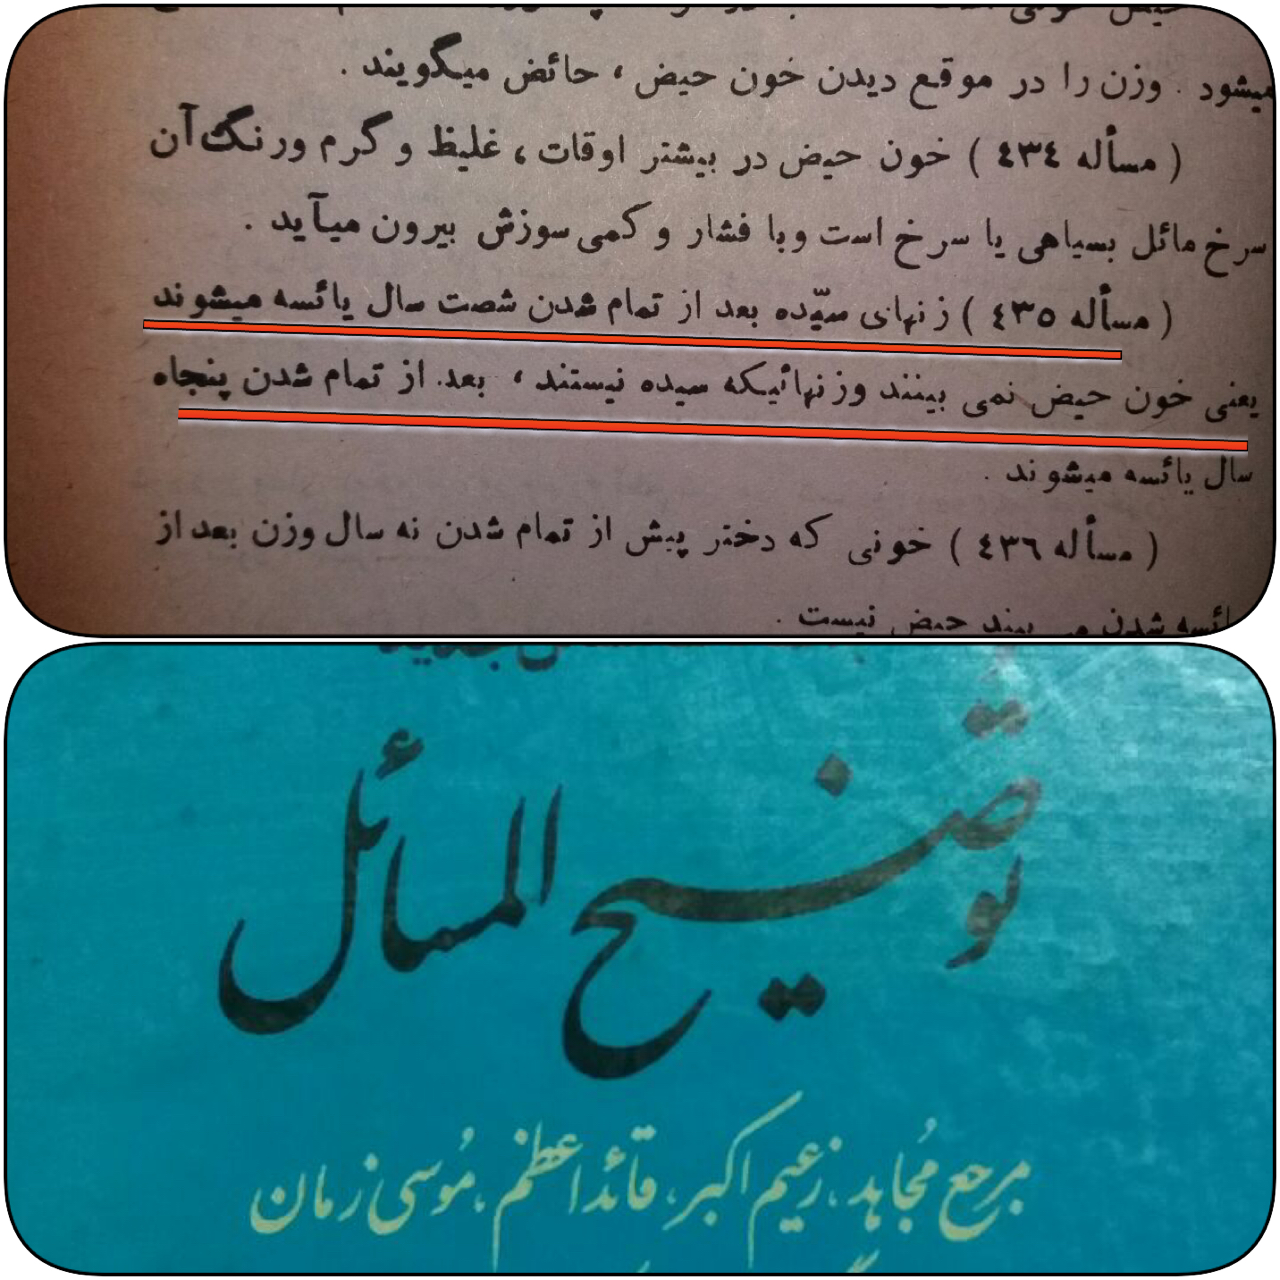 میشود . وزن را در موقع دیدن خون حیض ، حائض میگویند .
( مسأله ٤٣٤ ) خون حیض در بیشتر اوقات ، غلیظ و گرم ورنگ آن
سرخ مائل بسیاهی یا سرخ است وبا فشار و کمی سوزش بیرون میآید .
( مسأله ٤٣٥ ) زنهای سیّده بعد از تمام شدن شصت سال یائسه میشوند
یعنی خون حیض نمی بینند وزنهائیکه سیده نیستند ، بعد از تمام شدن پنجاه
سال یائسه میشوند .
( مسأله ٤٣٦ ) خونی که دختر پیش از تمام شدن نه سال وزن بعد از
یائسه شدن می بیند حیض نیست .
توضیح المسائل
مرجع مُجاهد، زعیم اکبر، قائد اعظم، مُوسی زمان